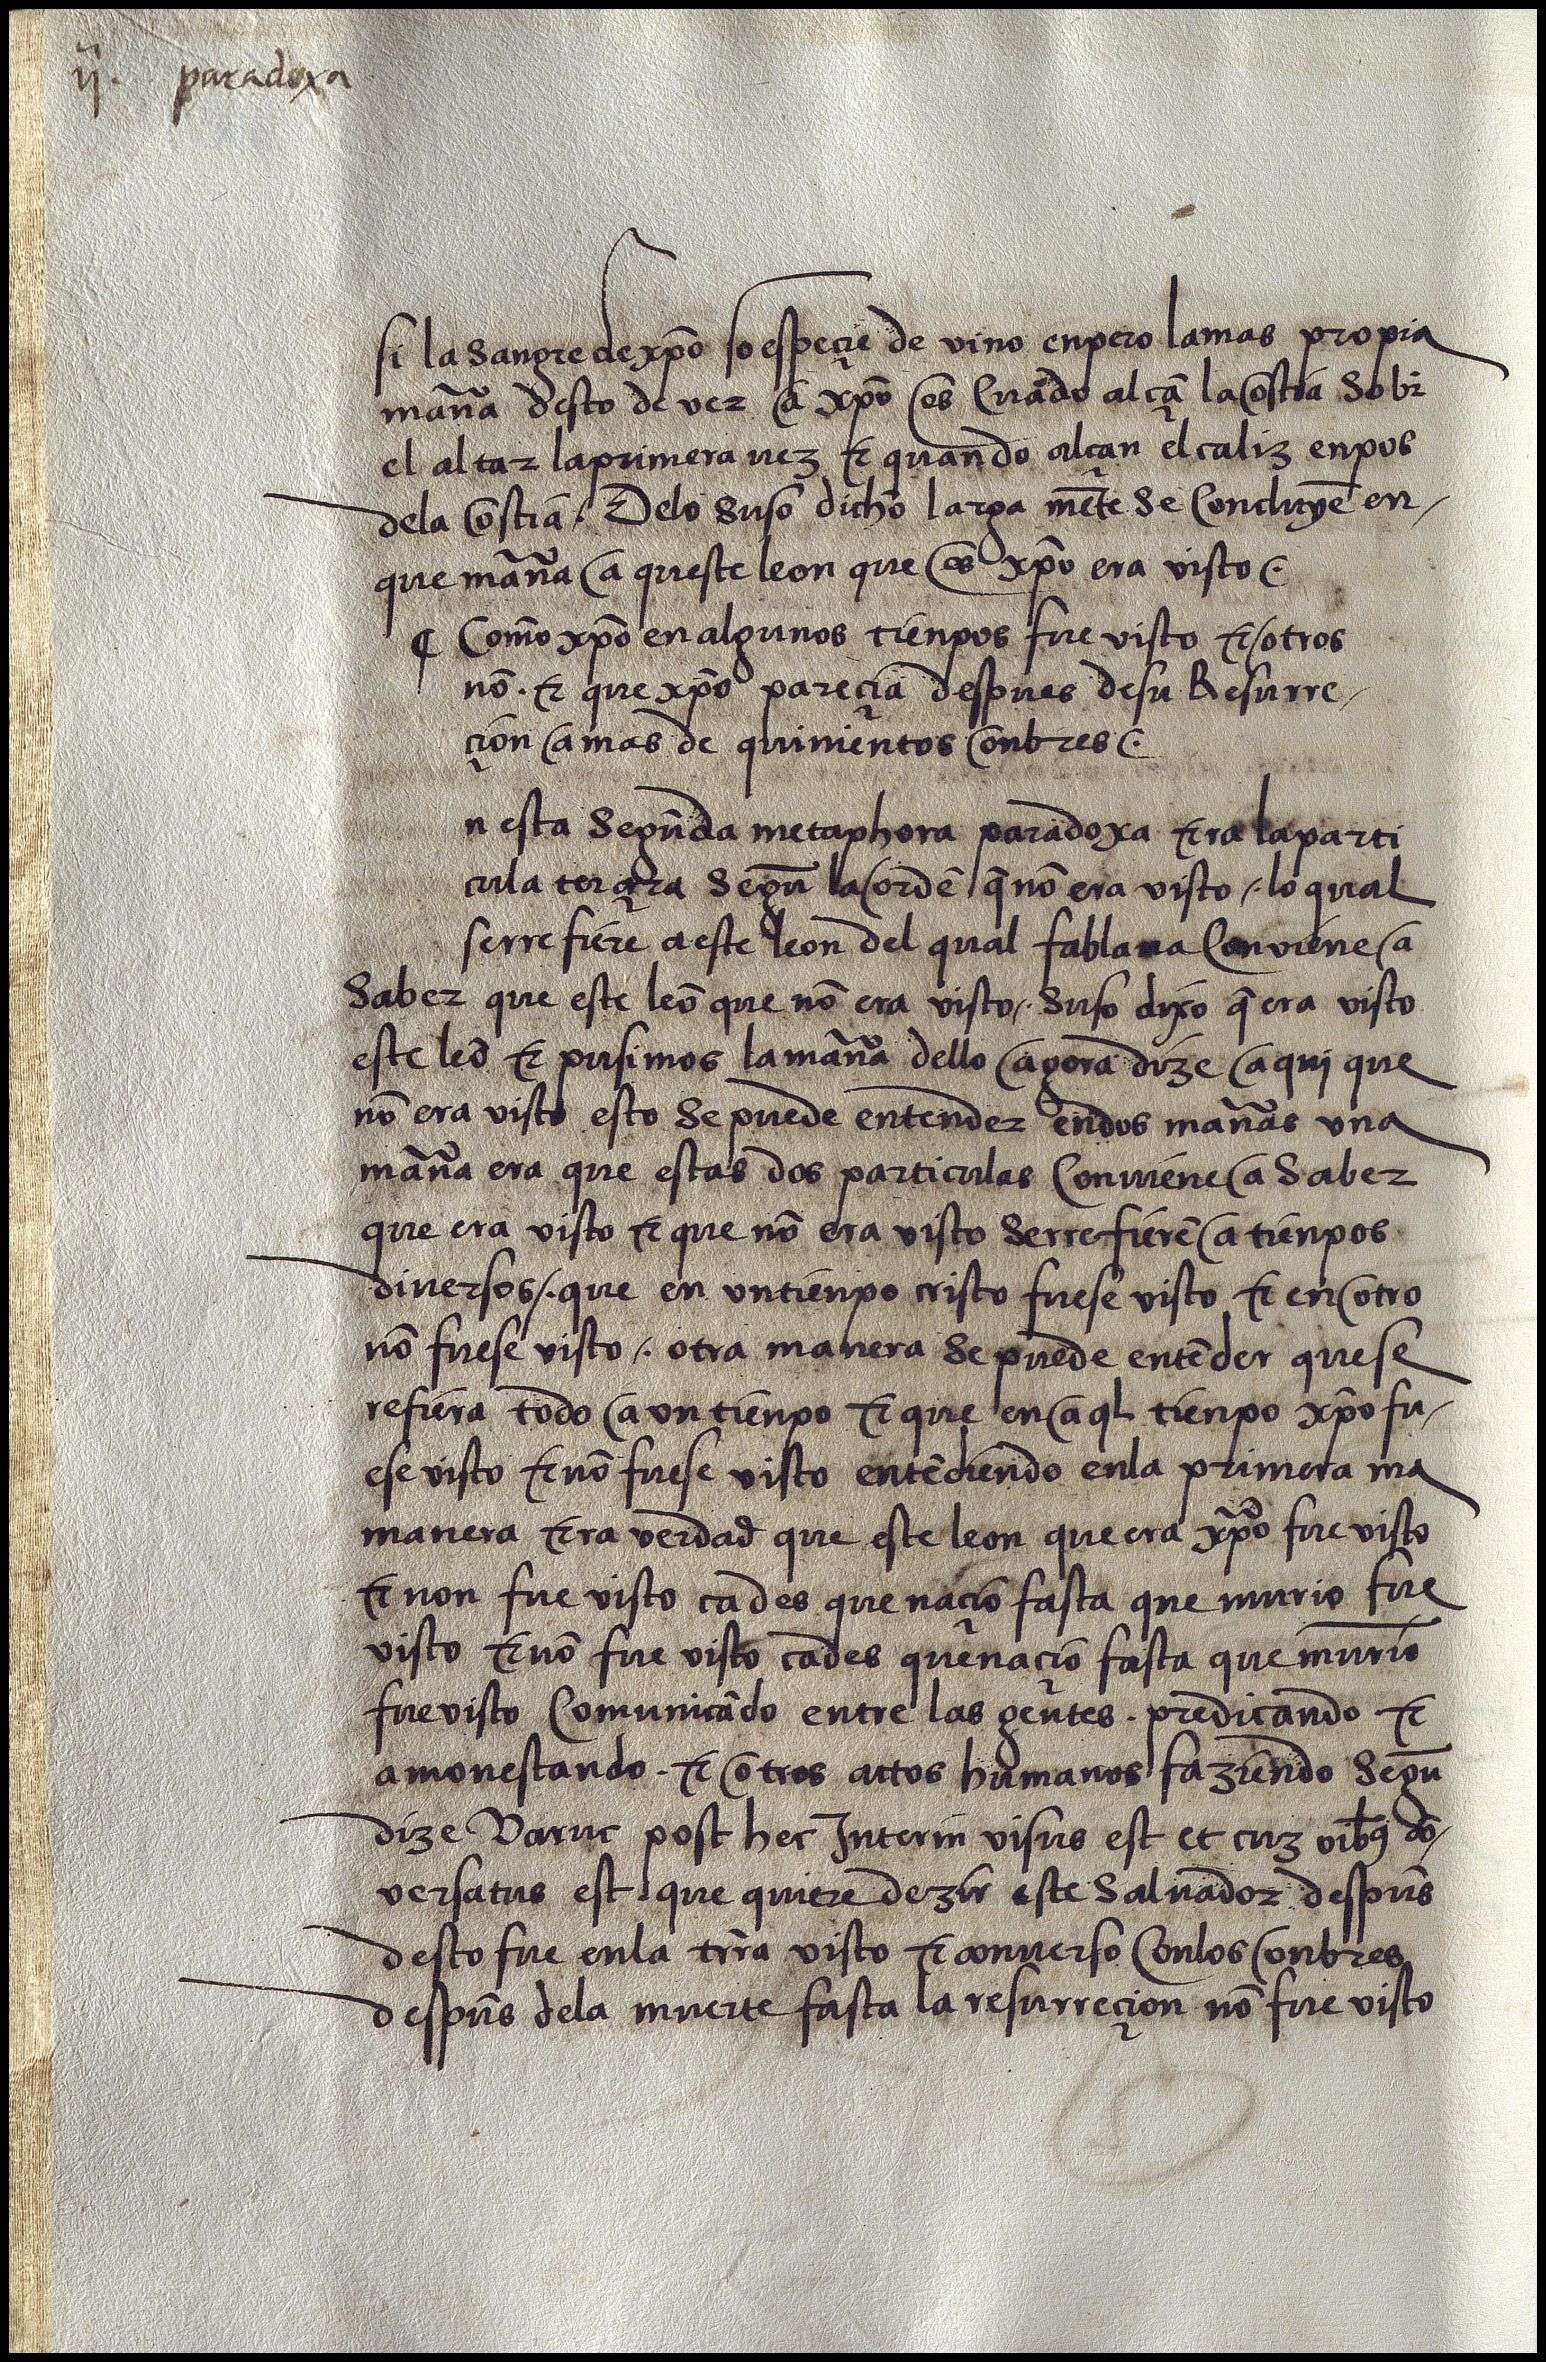 ij. paradoxa
si la sangre de xp̃o so espeçie de vino enpero la mas propia
mañ̃a desto de ver a xp̃o es quãdo alçã la ostia sobr
el altar la primera uez ⁊ quando alçan el caliz en pos
de la ostia. Delo suso dicho larga mẽte se concluye en
que mañ̃a aqueste leon que es xp̃o era visto.
¶ Como xp̃o en algunos tienpos fue visto ⁊ otros
nõ. ⁊ que xp̃o pareçia despues de su Resurre
çion a mas de quinientos onbres.
n esta segũda metaphora paradoxa era la parti
cula terçera segũ la ordẽ q̃ nõ era visto. lo qual
se rrefiere a este leon del qual fablaua conviene a
saber que este leõ que nõ era visto. suso dixo q̃ era visto
este leõ ⁊ pusimos la mañ̃a dello agora dize aqui que
nõ era visto esto se puede entender en dos mañ̃as vna
mañ̃a era que estas dos particulas conuiene a saber
que era visto ⁊ que nõ era visto se rrefierẽ a tienpos
diuersos. que en vn tienpo cristo fuese visto ⁊ en otro
nõ fuese visto. otra manera se puede entẽder que se
refiera todo a vn tienpo ⁊ que en aql tienpo xp̃o fu
ese visto ⁊ nõ fuese visto entẽdiendo en la primera ma
manera era verdad que este leon que era xp̃o fue visto
⁊ non fue visto ca des que naçio fasta que murio fue
visto ⁊ nõ fue visto ca des que naçio fasta que murio
fue visto comunicãdo entre las gentes. predicando ⁊
amonestando. ⁊ otros actos humanos faziendo segũ
dize Baruc post hec Interin visus est et cuz oĩbꝰ cõ
versatus est. que quiere dezir este saluador despũs
desto fue en la trr̃a visto ⁊ conuerso con los onbres
despũs de la muerte fasta la resurreçion nõ fue visto